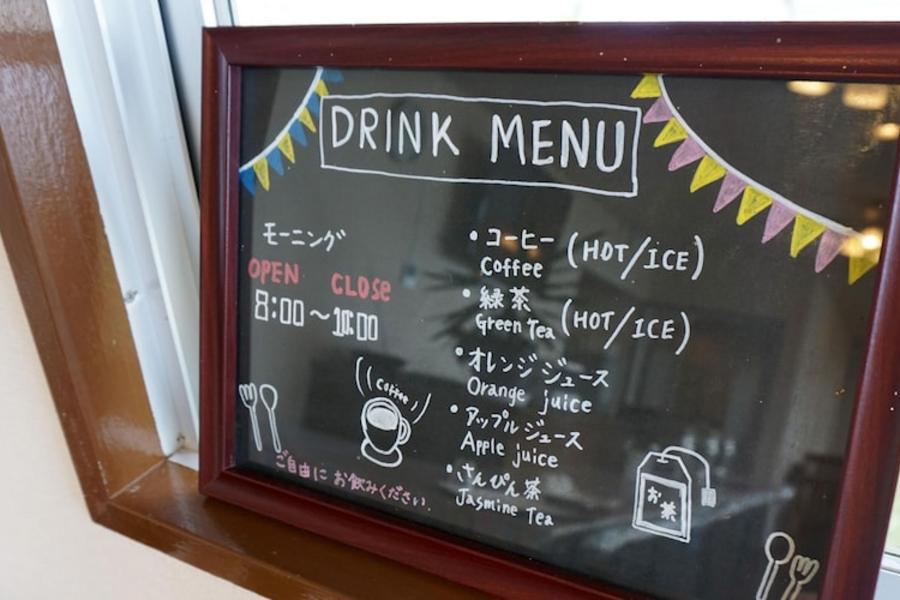 DRINK MENU
モーニング
OPEN CLOSE
8:00〜10:00
Coffee
ご自由にお飲みください
・コーヒー (HOT/ICE)
Coffee
・緑茶 (HOT/ICE)
Green Tea
・オレンジジュース
Orange juice
・アップルジュース
Apple juice
・さんぴん茶
Jasmine Tea
お茶